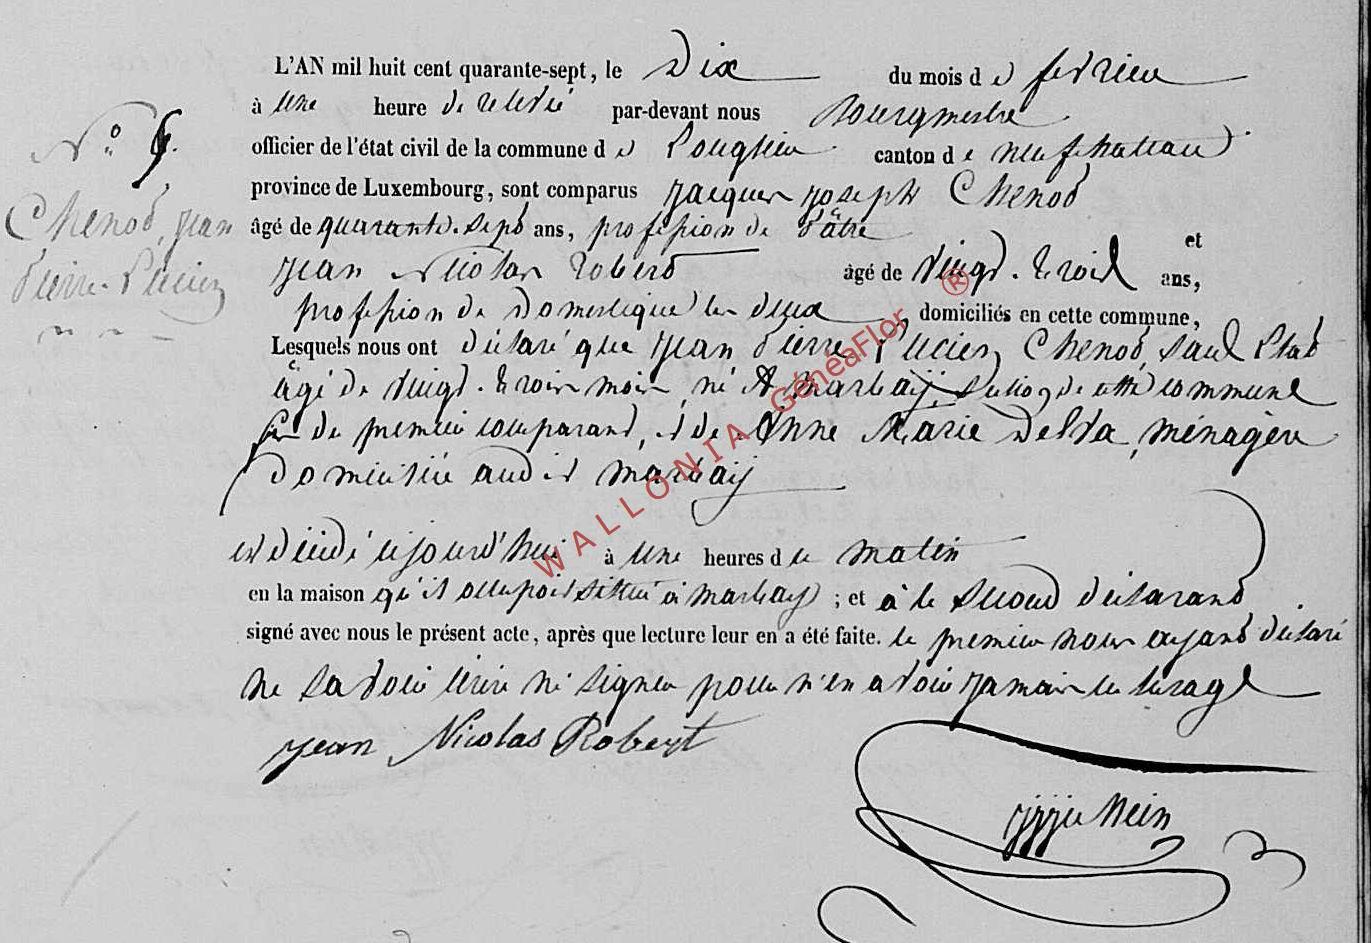 L'AN mil huit cent quarante-sept, le Dix du mois de fevrier
à une heure de relevée par-devant nous Bourgmestre
officier de l'état civil de la commune de Longlier canton de neufchateau
province de Luxembourg, sont comparus Jacques Joseph Chenot
âgé de quarante-sept ans, profession de Pâtre et
Jean Nicolas Robert âgé de vingt-trois ans,
profession de Domestique les deux, domiciliés en cette commune,
Lesquels nous ont déclaré que Jean Pierre Lucien Chenot, sans Etat
âgé de vingt-trois mois, né A Marbay, section de cette commune
fils de premier comparant, et de Anne Marie Delva, ménagère
Domiciliée audit Marbay
est décédé ajourd'hui à une heures du matin
en la maison qu'il occupoit située à Marbay; et a le second déclarant
signé avec nous le présent acte, après que lecture leur en a été faite. le premier nous ayant déclaré
ne savoir écrire ni signer pour n'en avoir jamais eu l'usage
Jean Nicolas Robert
N°
Chenot, Jean
Pierre Lucien
WALLONIA GénéaFlor ®